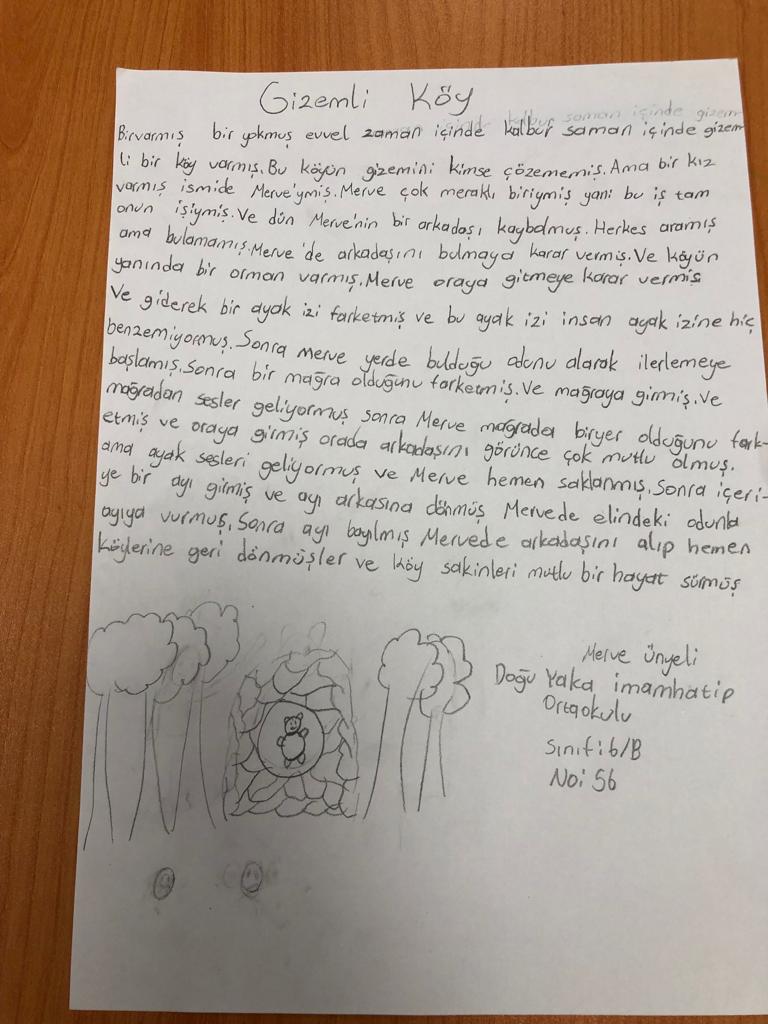 Gizemli Köy
Birvarmış bir yokmuş evvel zaman içinde kalbur saman içinde gizem
li bir köy varmış. Bu köyün gizemini kimse çözememiş. Ama bir kız
varmış ismide Merve'ymiş. Merve çok meraklı biriymiş yani bu iş tam
onun işiymiş. Ve dün Merve'nin bir arkadaşı kaybolmuş. Herkes aramış
ama bulamamış. Merve'de arkadaşını bulmaya karar vermiş. Ve köyün
yanında bir orman varmış. Merve oraya gitmeye karar vermiş
Ve giderek bir ayak izi farketmiş ve bu ayak izi insan ayak izine hiç
benzemiyormuş. Sonra Merve yerde bulduğu odunu alarak ilerlemeye
başlamış. Sonra bir mağra olduğunu farketmiş. Ve mağraya girmiş. Ve
mağradan sesler geliyormuş sonra Merve mağrada biryer olduğunu fark-
etmiş ve oraya girmiş orada arkadaşını görünce çok mutlu olmuş.
ama ayak sesleri geliyormuş ve Merve hemen saklanmış. Sonra içeri-
ye bir ayı girmiş ve ayı arkasına dönmüş Mervede elindeki odunla
ayıya vurmuş. Sonra ayı bayılmış Mervede arkadaşını alıp hemen
köylerine geri dönmüşler ve köy sakinleri mutlu bir hayat sürmüş
Merve ünyeli
Doğu Yaka imamhatip
Ortaokulu
Sınıf: 6/B
No: 56